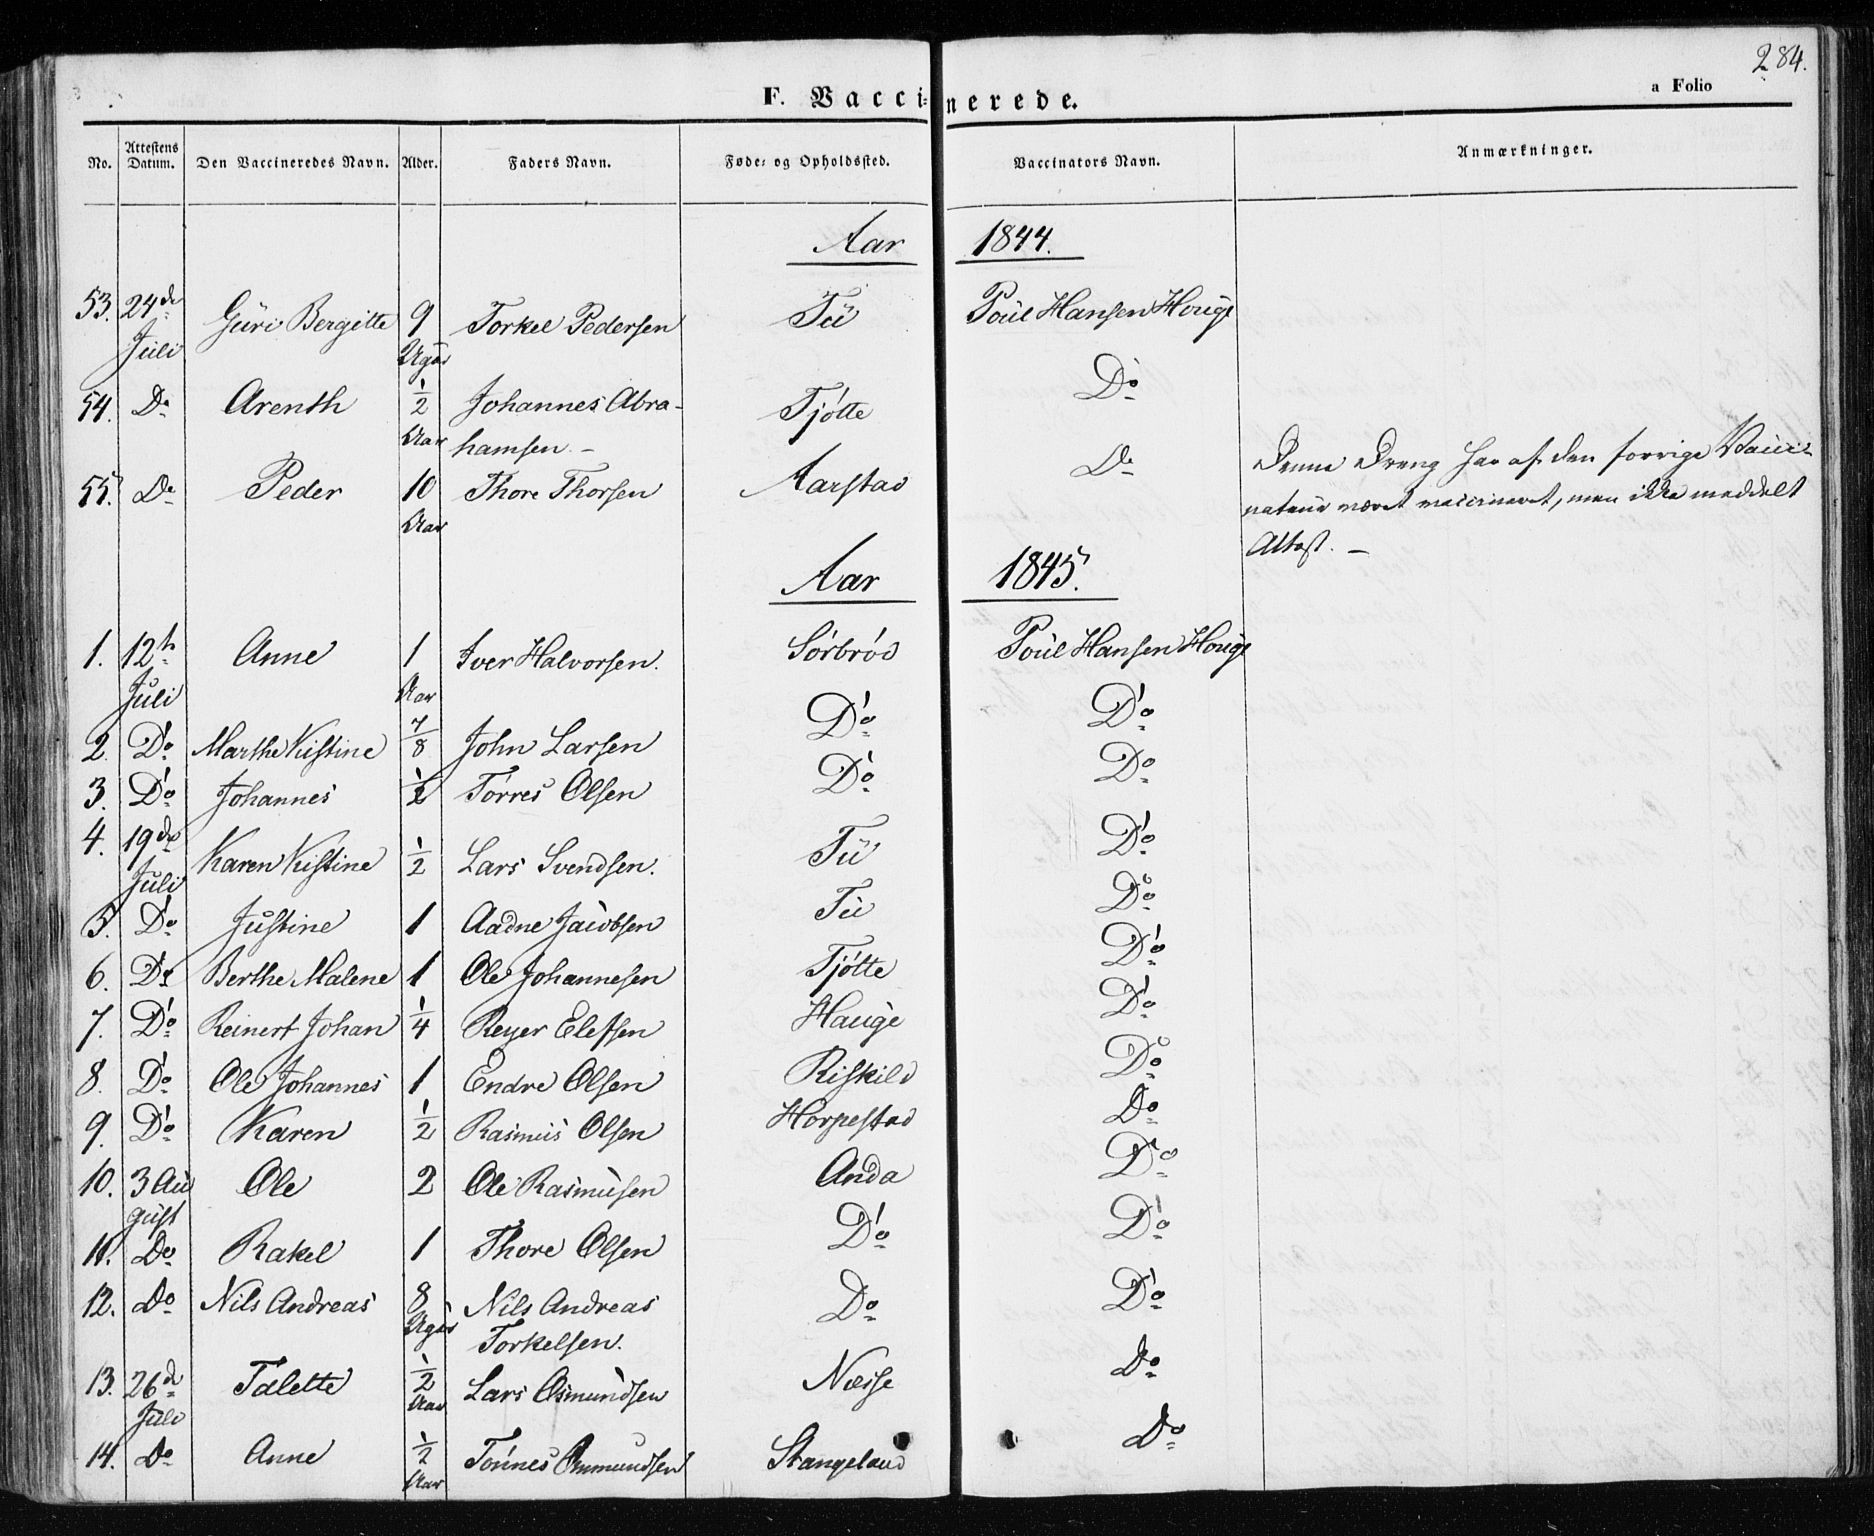 284.
F. Vaccinerede.
a Folio
No. Attestens Datum. Den Vaccineredes Navn. Alder. Faders Navn. Føde- og Opholdssted. Vaccinators Navn. Anmærkninger.
Aar 1844.
53. 24de Juli Güri Bergitte 9 Uger Torkel Pedersen Tü Poül Hansen Houge
54. Do Arenth 1/2 Aar Johannes Abra-
hamsen. - Tjötte Do
55. Do Peder 10 Aar Thore Thorsen Aarstad Do Denne Dreng har af den forrige Vacci-
nateur været vaccineret, men ikke meddelt
Attest. -
Aar 1845.
1. 12te Juli Anne 1 Aar Iver Halvorsen. Sörbröd Poül Hansen Houge
2. Do Marthe Kistine 7/8 John Larsen Do Do
3. Do Johannes 1/2 Törres Olsen Do Do
4. 19de Juli Karen Kistine 1/2 Lars Svendsen. Tü Do
5. Do Justine 1 Aadne Jacobsen Tü Do
6. Do Berthe Malene 1 Ole Johannesen Tjötte Do
7. Do Reinert Johan 1/4 Reyer Elefsen Haüge Do
8. Do Ole Johannes 1 Endre Olsen Riskild Do
9. Do Karen 1/2 Rasmüs Olsen Horpestad Do
10. 3 Aü
güst Ole 2 Ole Rasmüsen Anda Do
11. Do Rakel 1 Thore Olsen Do Do
12. Do Nils Andreas 8 Uger Nils Andreas
Torkelsen. Do Do
13. 26de Juli Talette 1/2 Aar Lars Osmundsen Næsse Do
14. Do Anne 1/2 Aar Tönnes Ommundsen Stangeland Do